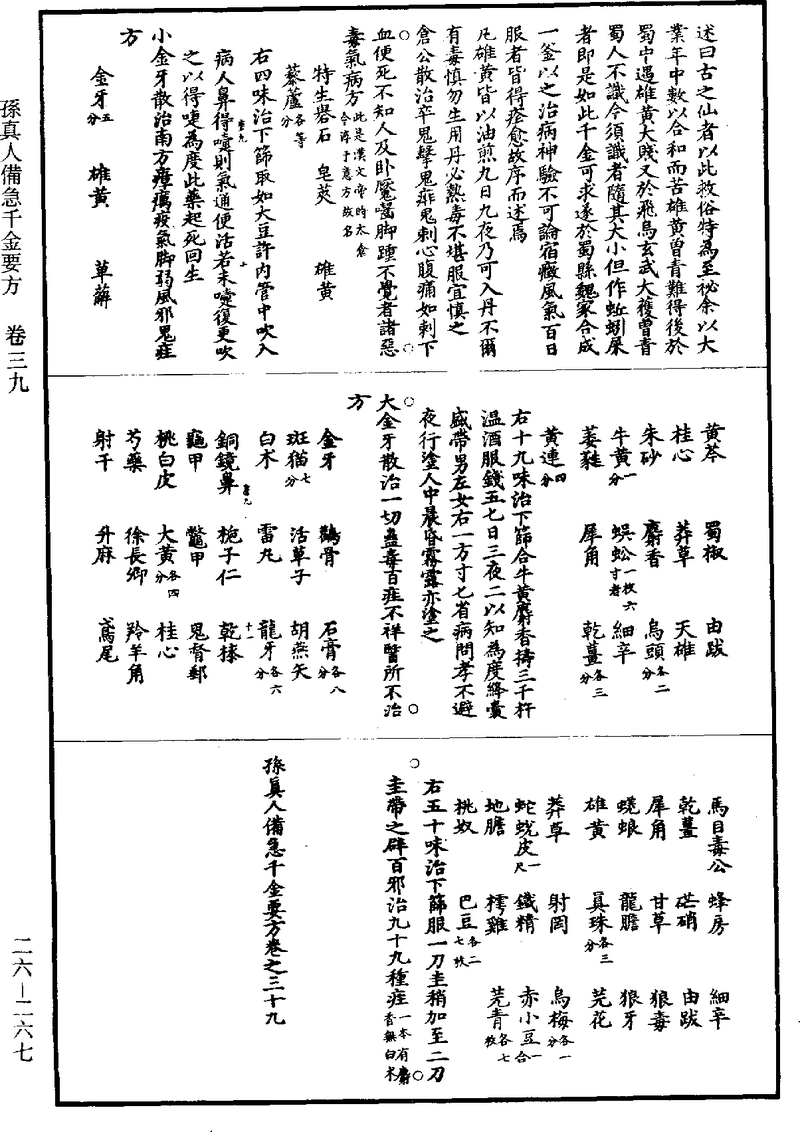 述曰古之仙者以此救俗特為至祕余以大
業年中數以合和而苦雄黃曾青難得後於
蜀中遇雄黃大賤又於飛烏玄武大獲曾青
蜀人不識今須識者隨其大小但作蚯蚓屎
者即是如此千金可求遂於蜀縣魏家合成
一釜以之治病神驗不可論宿癥風氣百日
服者皆得痊愈故序而述焉
凡雄黃皆以油煎九日九夜乃可入丹不爾
有毒慎勿生用丹必熱毒不堪服宜慎之
倉公散治卒鬼擊鬼痱鬼刺心腹痛如刺下
血便死不知人及卧魘齧脚踵不覺者諸惡
毒氣病方 此是漢文帝時太倉令淳于意方故名
特生礜石 皂莢 雄黃
藜蘆各等分
右四味治下篩取如大豆許內管中吹入
病人鼻得嚏則氣通便活若未嚏復更吹
之以得嚏為度此藥起死回生
小金牙散治南方瘴癘疫氣脚弱風邪鬼疰
方
金牙五分 雄黃 萆薢
黃芩 蜀椒 由跋
桂心 莽草 天雄
朱砂 麝香 烏頭各二分
牛黃一分 蜈蚣一枚六寸者 細辛
萎蕤 犀角 乾薑各三分
黃連四分
右十九味治下篩合牛黃麝香擣三千杵
溫酒服錢五七日三夜二以知為度絳囊
盛帶男左女右一方寸匕省病問孝不避
夜行塗人中晨昏霧露亦塗之
大金牙散治一切蠱毒百疰不祥醫所不治
方
金牙 鸛骨 石膏各八分
斑猫七分 活草子 胡燕矢
白朮 雷丸 龍牙各六分
銅鏡鼻 梔子仁 乾㯃
龜甲 鼈甲 鬼督郵
桃白皮 大黃各四分 桂心
芍藥 徐長卿 羚羊角
射干 升麻 鳶尾
馬目毒公 蜂房 細辛
乾薑 芒硝 由跋
犀角 甘草 狼毒
蜣蜋 龍膽 狼牙
雄黃 真珠各三分 芫花
莽草 射罔 烏梅各一分
蛇蛻皮一尺 鐵精 赤小豆一合
地膽 樗雞 芫青各七枚
桃奴 巴豆各二七枚
右五十味治下篩服一刀圭稍加至二刀
圭帶之辟百邪治九十九種疰 一本有麝香無白朮
孫真人備急千金要方卷之三十九
孫真人備急千金要方 卷三九
二六—二六七